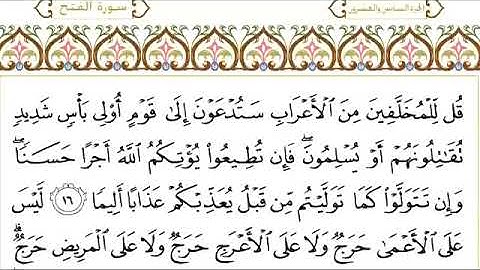 الجزء السادس والعشرون
سورة الفتح
قُل لِّلْمُخَلَّفِينَ مِنَ ٱلْأَعْرَابِ سَتُدْعَوْنَ إِلَىٰ قَوْمٍ أُو۟لِى بَأْسٍ شَدِيدٍ
تُقَـٰتِلُونَهُمْ أَوْ يُسْلِمُونَ ۖ فَإِن تُطِيعُوا۟ يُؤْتِكُمُ ٱللَّهُ أَجْرًا حَسَنًا ۖ
وَإِن تَتَوَلَّوْا۟ كَمَا تَوَلَّيْتُم مِّن قَبْلُ يُعَذِّبْكُمْ عَذَابًا أَلِيمًا ١٦ لَّيْسَ
عَلَى ٱلْأَعْمَىٰ حَرَجٌ وَلَا عَلَى ٱلْأَعْرَجِ حَرَجٌ وَلَا عَلَى ٱلْمَرِيضِ حَرَجٌ ۗ